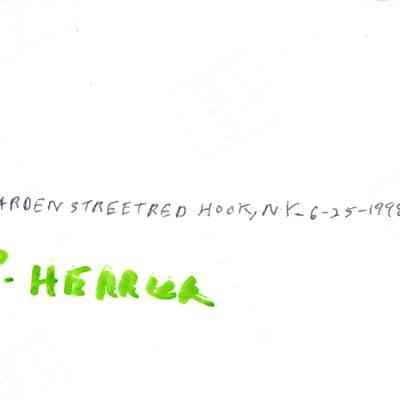 ARDEN STREETRED HOOK, NY. 6-25-1998
P. HERRICK